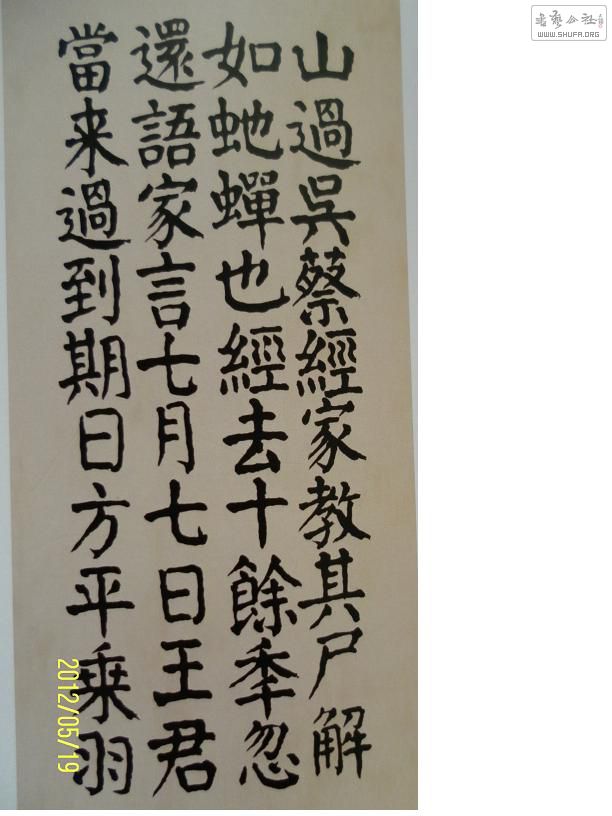 山過吳蔡經家教其尸解
如虵蟬也經去十餘秊忽
還語家言七月七日王君
當来過到期日方平乗羽
2012/05/19
书艺公社
WWW.SHUFA.ORG